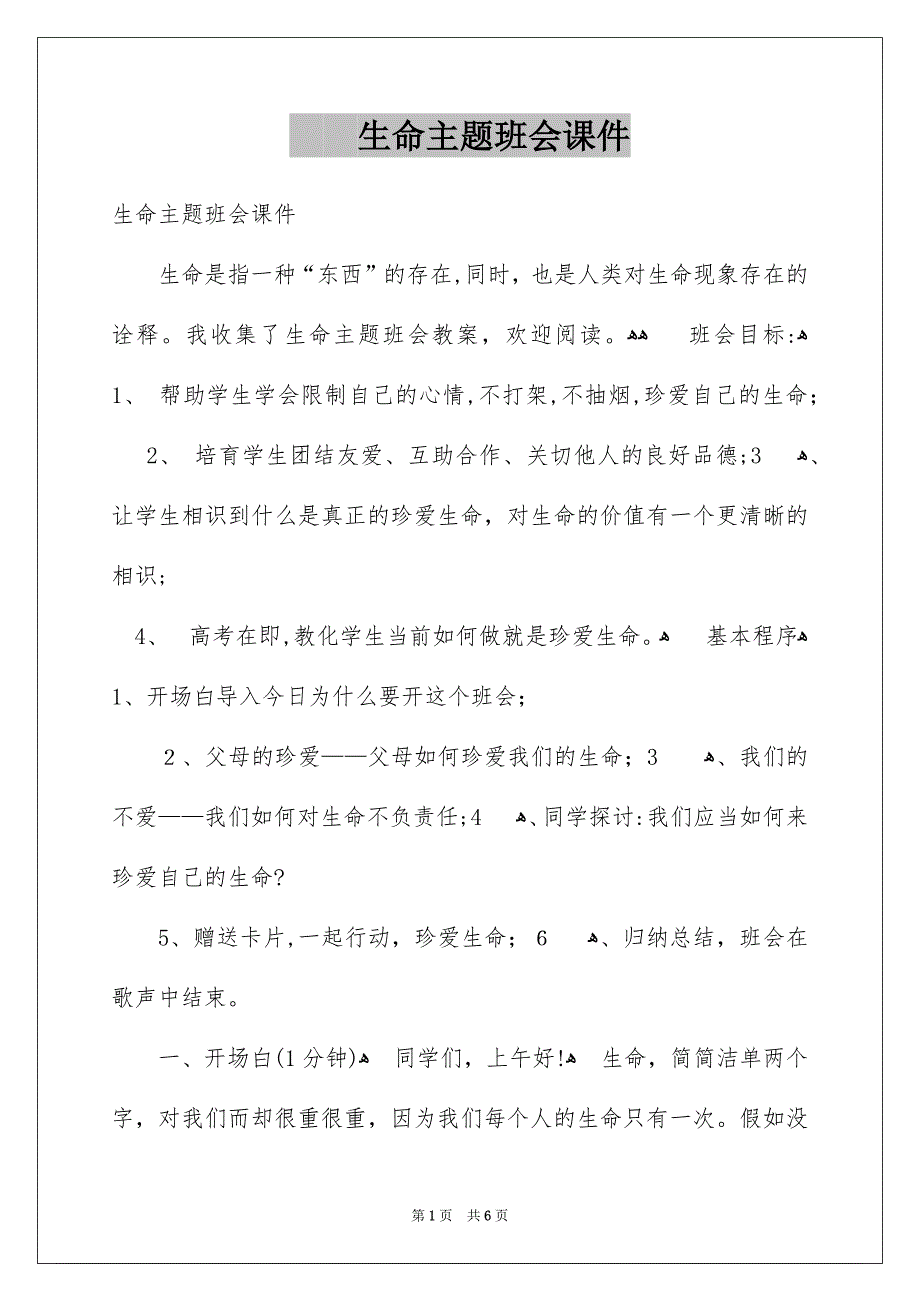 生命主题班会课件
生命主题班会课件
生命是指一种“东西”的存在,同时，也是人类对生命现象存在的
诠释。我收集了生命主题班会教案，欢迎阅读。ﻫﻫ 班会目标:ﻫ
1、 帮助学生学会限制自己的心情,不打架,不抽烟,珍爱自己的生命;
2、 培育学生团结友爱、互助合作、关切他人的良好品德;3 ﻫ、
让学生相识到什么是真正的珍爱生命，对生命的价值有一个更清晰的
相识;
4、 高考在即,教化学生当前如何做就是珍爱生命。ﻫ 基本程序ﻫ
1、开场白导入今日为什么要开这个班会；
２、父母的珍爱——父母如何珍爱我们的生命；3 ﻫ、我们的
不爱——我们如何对生命不负责任;4 ﻫ、同学探讨:我们应当如何来
珍爱自己的生命?
5、赠送卡片,一起行动，珍爱生命； 6 ﻫ、归纳总结，班会在
歌声中结束。
一、开场白(1分钟)ﻫ 同学们，上午好!ﻫ 生命，简简洁单两个
字，对我们而却很重很重，因为我们每个人的生命只有一次。假如没
第1页 共6页